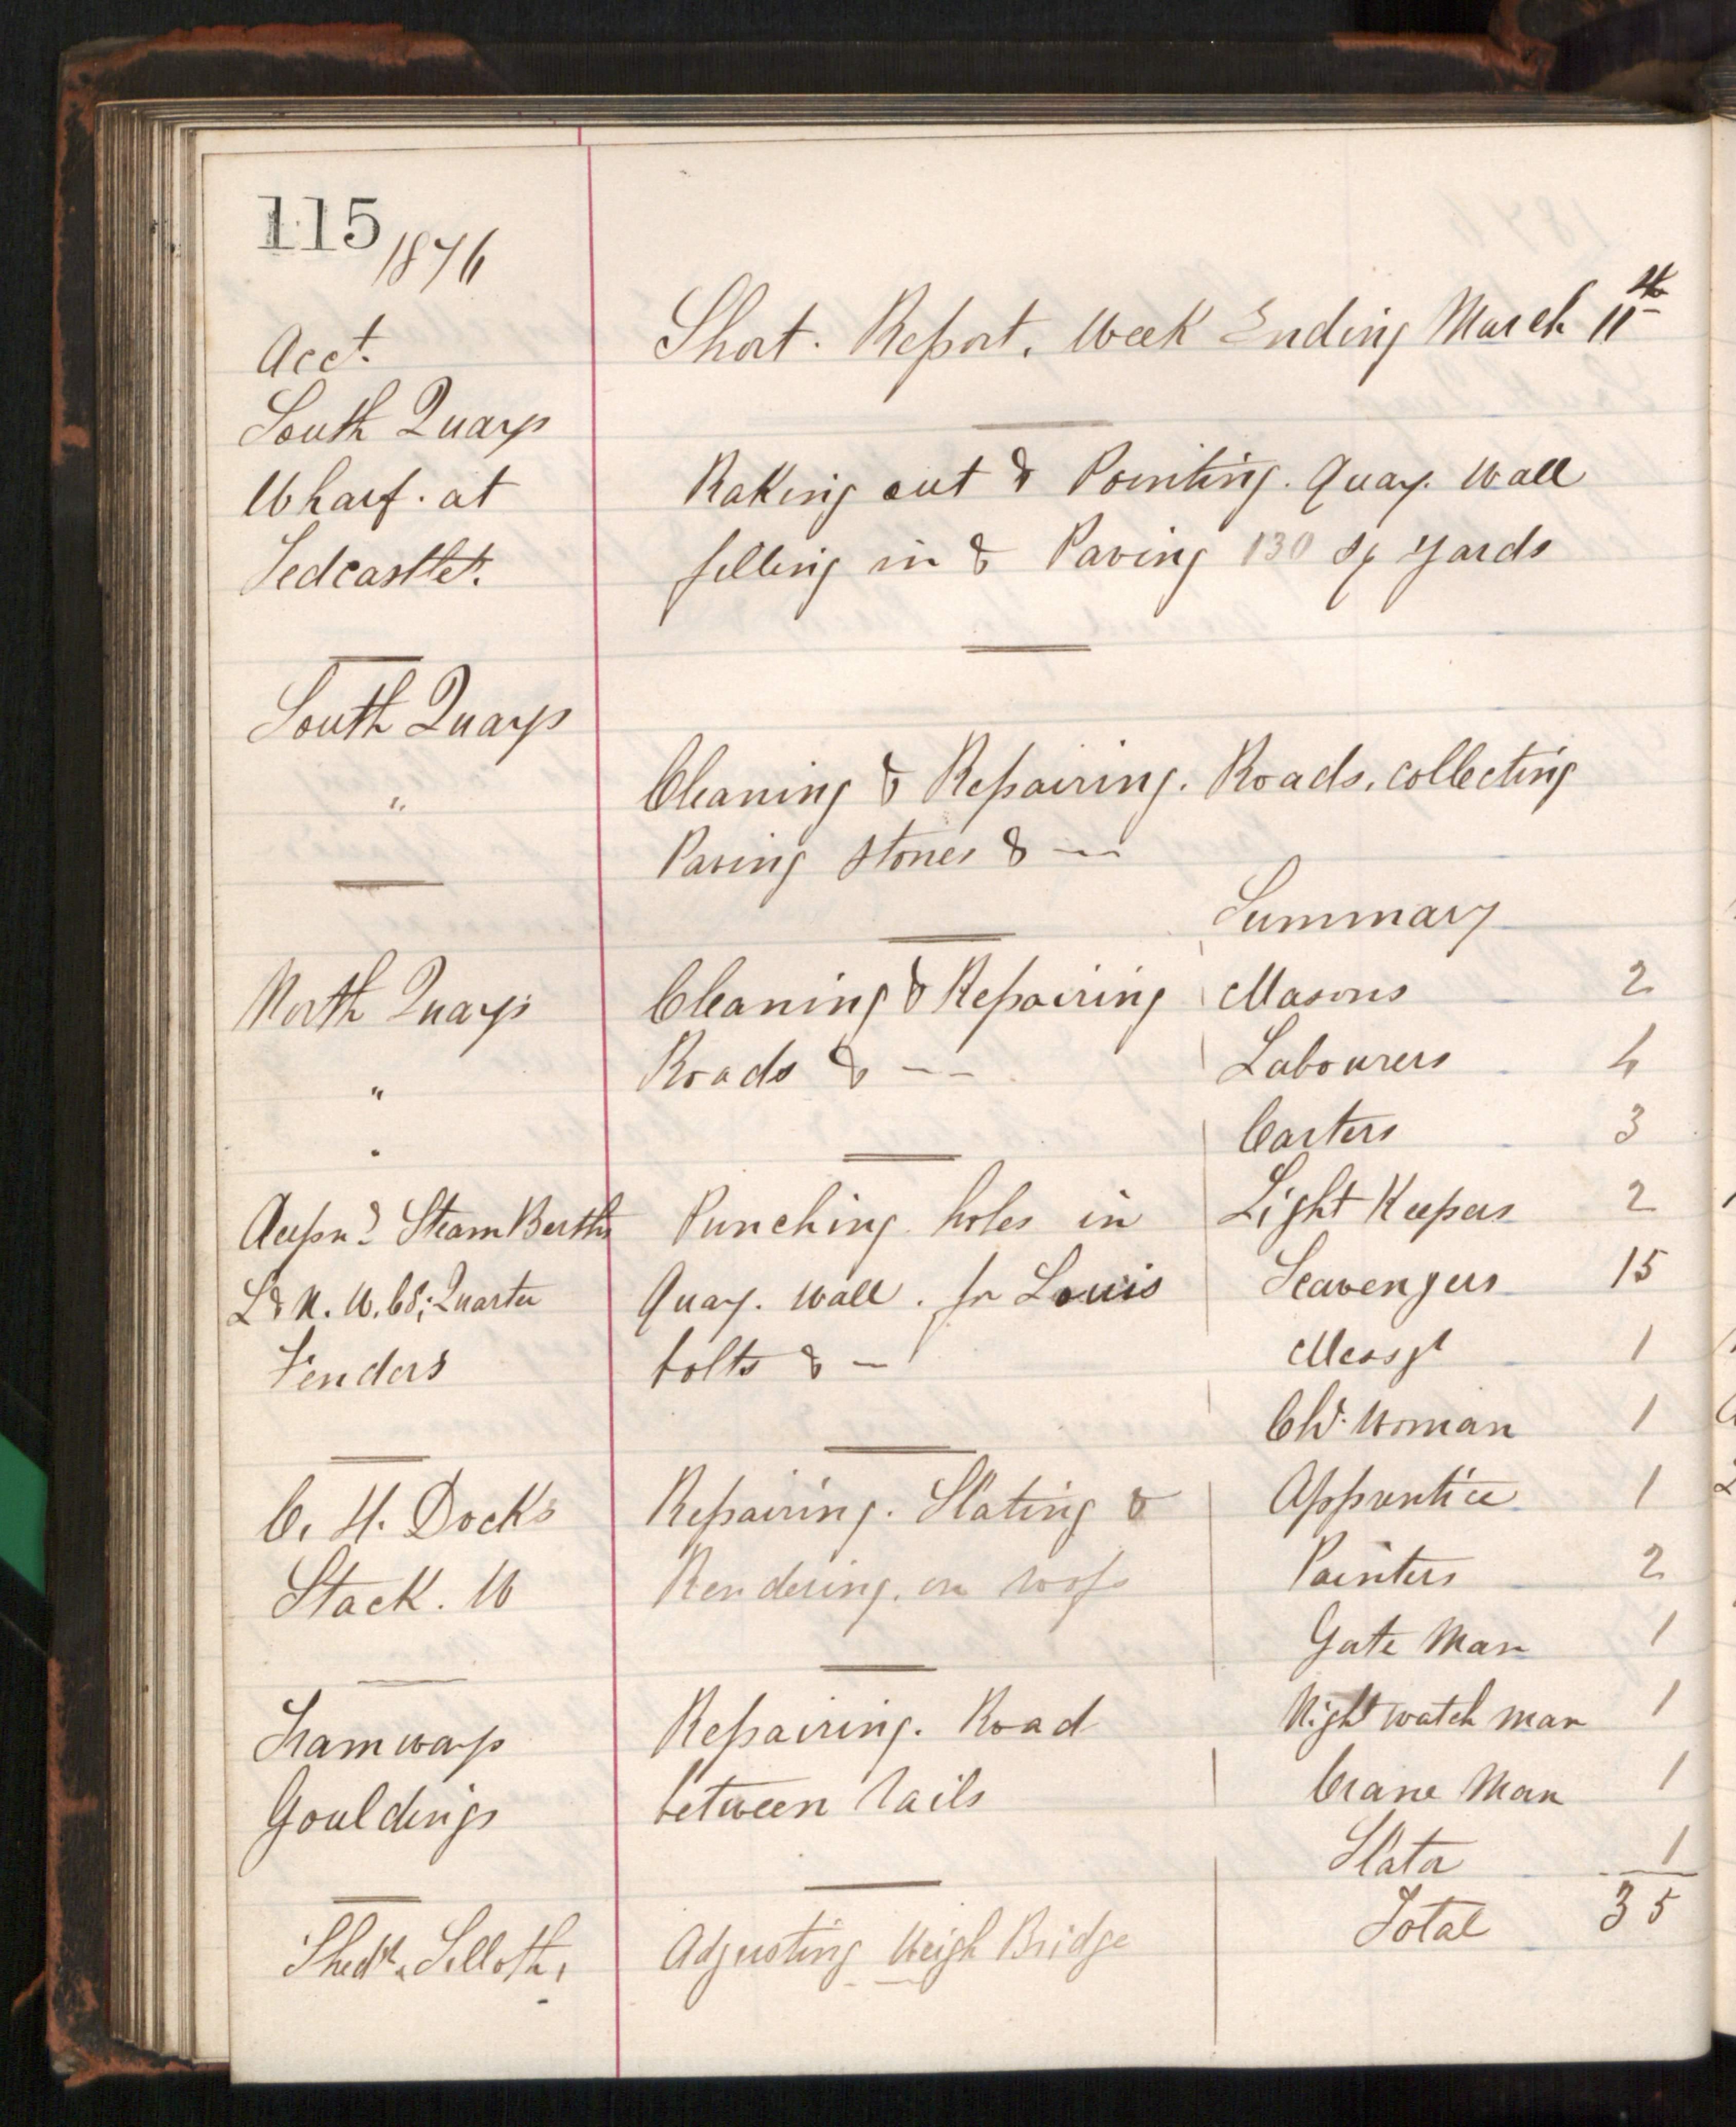 115
1876
Short. Report. Week Ending March 11th
Acct.
South Quays
Wharf. at
Tedcastlet.
Raking out & Pointing. Quay. Wall
filling in & Paving 130 Sq Yards
South Quays
"
Cleaning & Repairing. Roads. collecting
Paving Stones & —
North Quays
"
Cleaning & Repairing
Roads & --
Steam Berths
L & N. W. Co; Quarter
Fenders
Punching holes in
Quay. Wall. for Louis
bolts & —
C. H. Docks
Stack. W
Repairing. Slating &
Rendering. on roofs
Tramways
Gouldings
Repairing. Road
between Rails
Shed. Silloth.
Adjusting Weigh Bridge
Summary
Masons 2
Labourers 4
Carters 3
Light Keepers 2
Scavengers 15
Messgr 1
Woman 1
Apprentice 1
Painters 2
Gate Man 1
Night watch man 1
Crane Man 1
Slater 1
Total 35